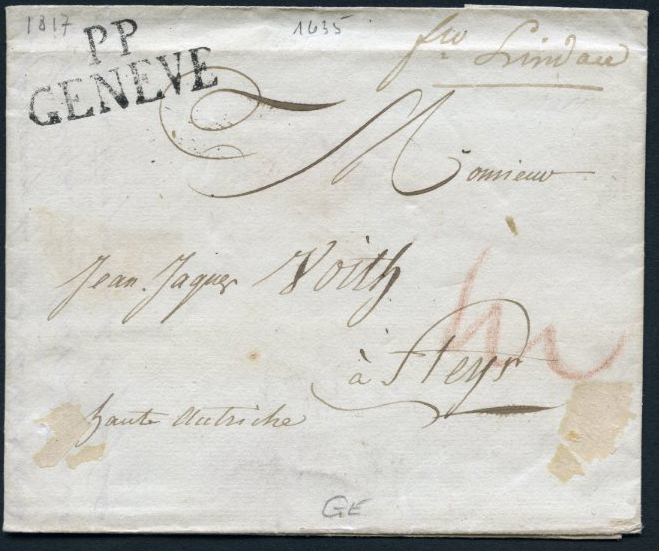 1817
1635
PP
GENEVE
fco Lindau
Monsieur
Jean. Jaques Voith
à Steyr
haute Autriche
GE